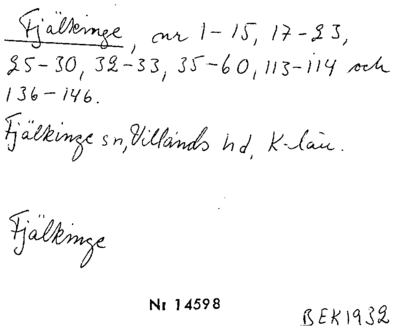 Fjälkinge, nr 1-15, 17-23,
25-30, 32-33, 35-60, 113-114 och
136-146.
Fjälkinge sn, Villands hd, K-län.
Fjälkinge
Nr 14598
BEK1932